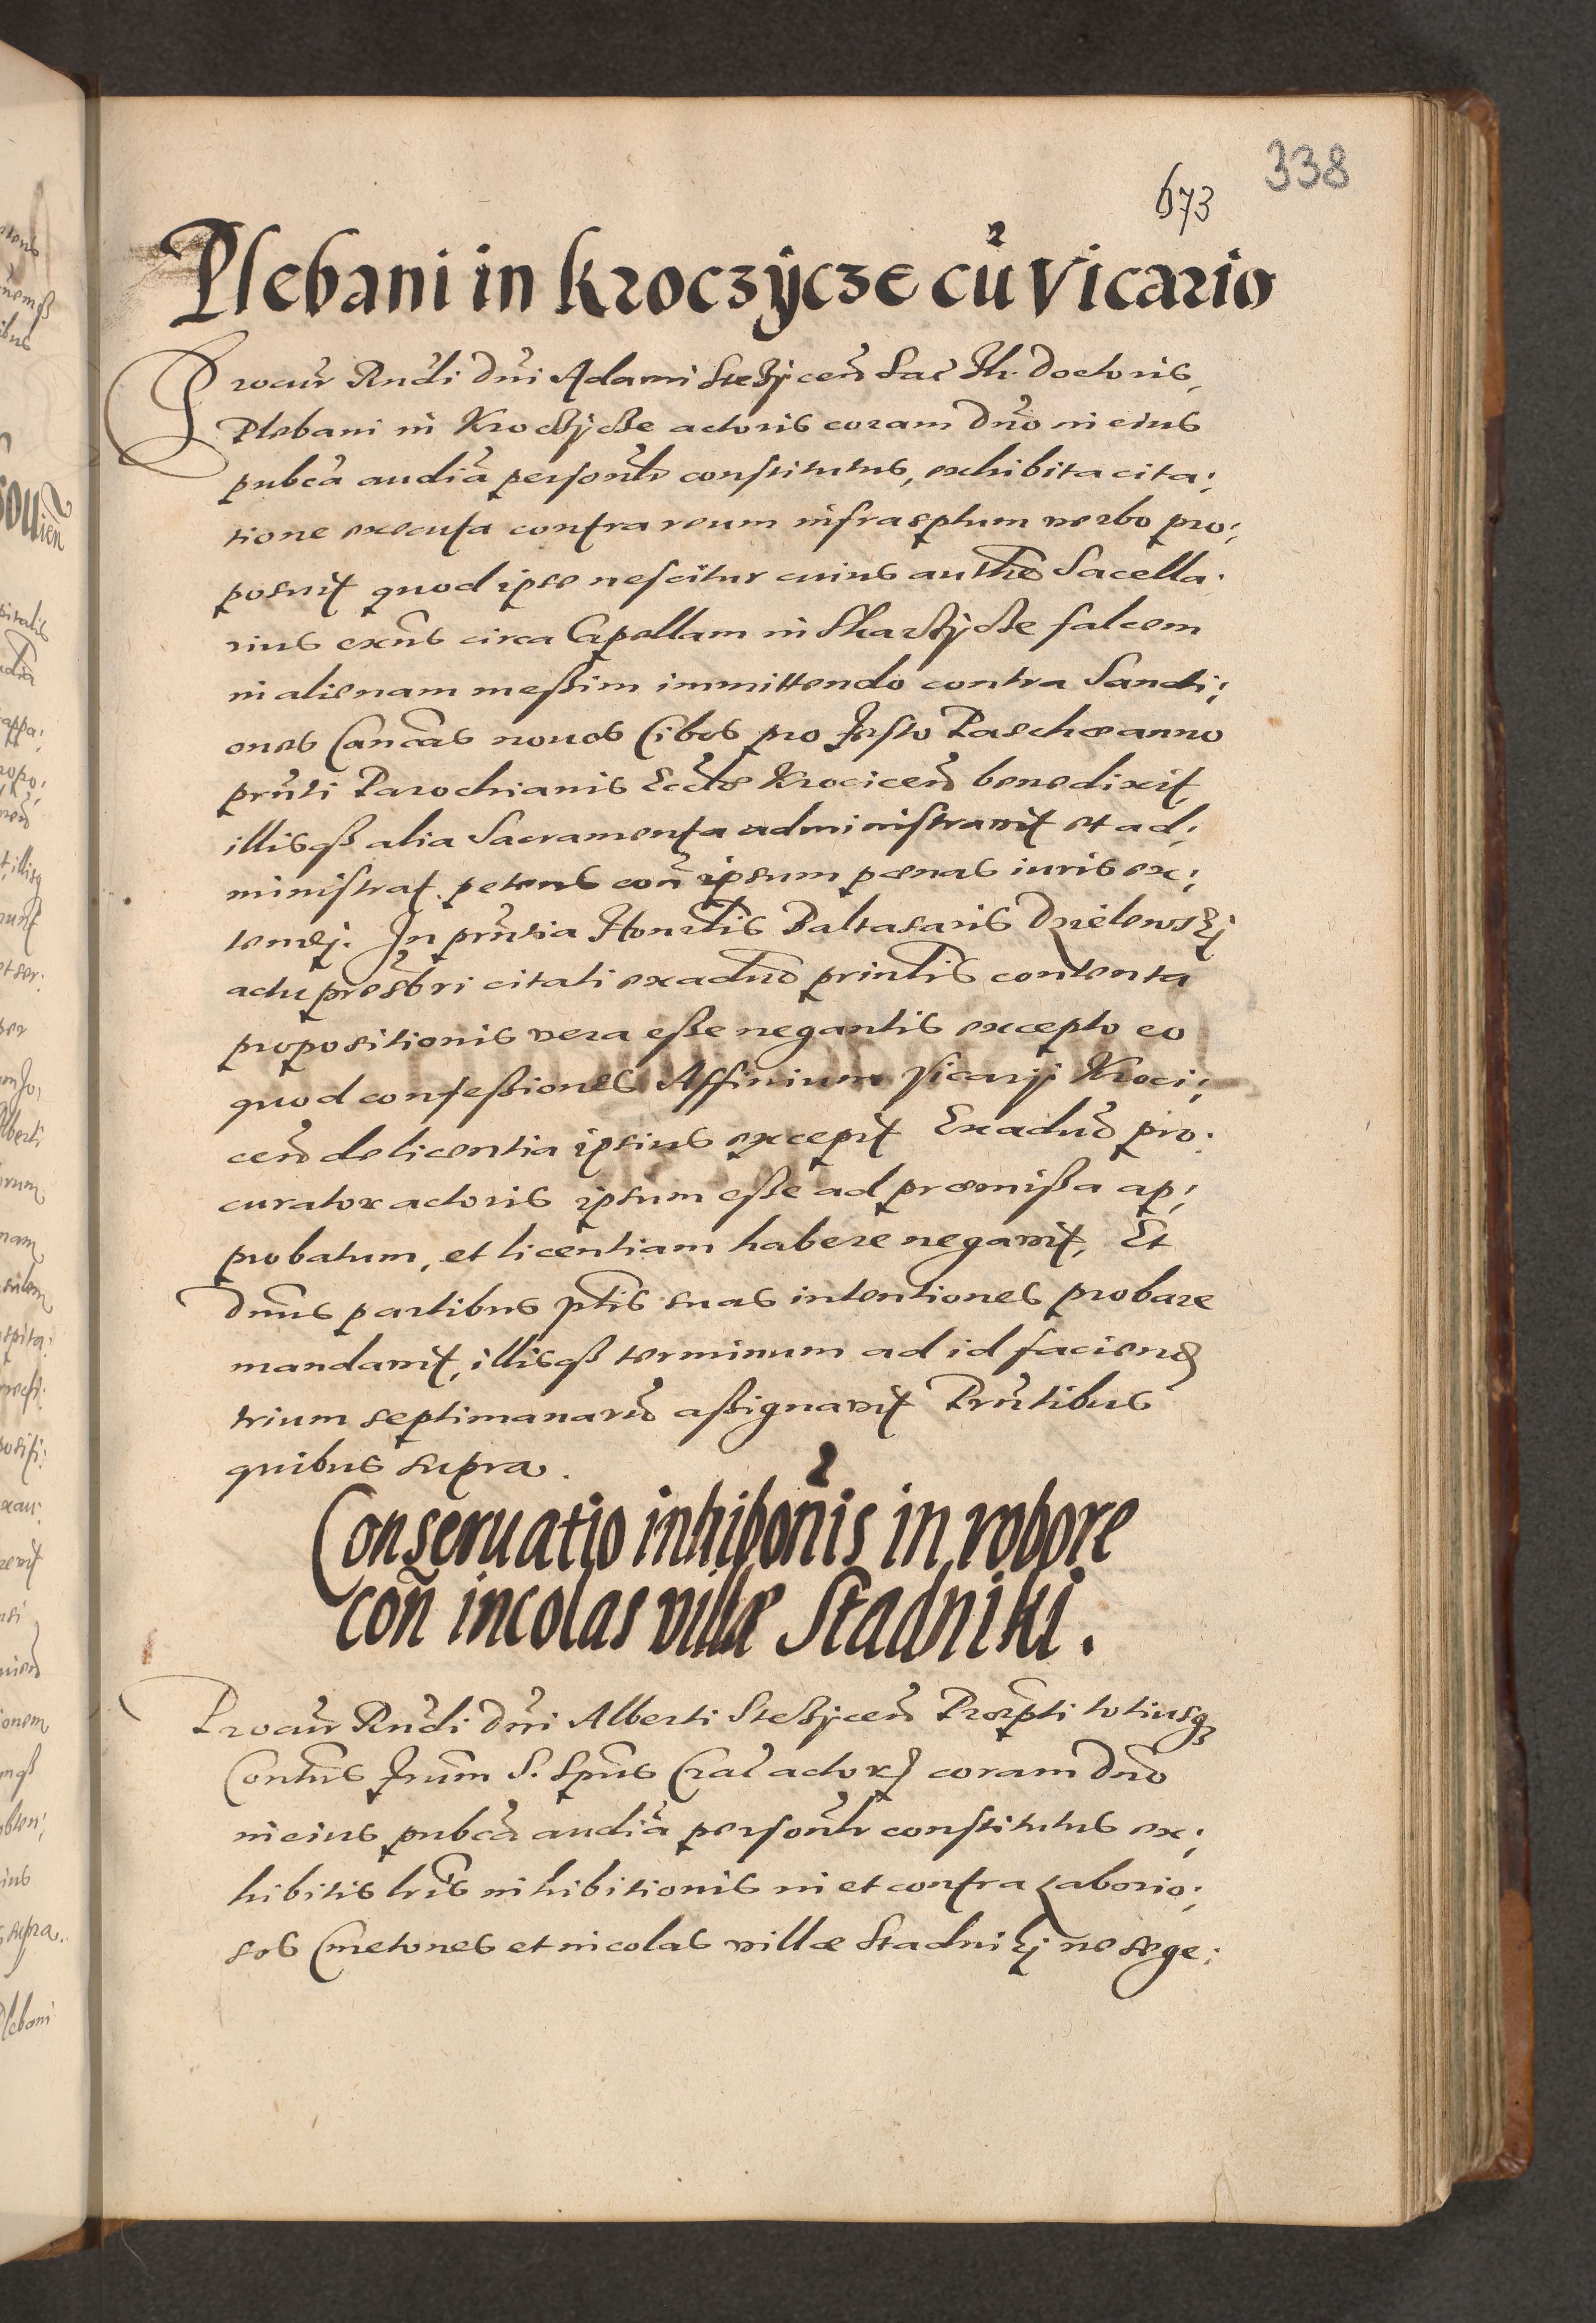 338
673
Plebani in Kroczÿcze cũ Vicario
Procur Rndi Dni Adami Stezÿcen̄ Sac Th. Doctoris,
Plebani in Kroczÿcze actoris coram Dno in eius
pubca audia personlr constitutus, exhibita cita:
tione executa contra reum infrasptum verbo pro:
posuit quod ipse nescitur cuius authe Sacella:
nus exns circa Capellam in Skarzÿcze falcem
in alienam meßim immittendo contra Sancti:
ones Cancas nouos Cibos pro Festo Paschæ anno
prnti Parochianis Eccliæ Krocicen̄ benedixit,
illisqß alia Sacramenta administravit et ad:
ministrat. petens con̄ ipsum pœnas iuris ex:
tendj. In prntia Honrlis Baltasaris
actu presbri citati exaduo printis contenta
propositionis vera eße negantis excepto eo
quod confeßiones Affinium Vicarÿ Kroci:
cen̄ de licentia ipsius excepit Exaduo pro:
curator actoris ipsum eße ad præmißa ap:
probatum, et licentiam habere negavit, Et
Dnus partibus ptis suas intentiones probare
mandavit, illisqß terminum ad id faciend
trium septimanarũ aßignavit Prntibus
quibus supra.
Conseruatio inhibonis in robore
con̄ incolas villæ Stadniki.
Procur Rndi Dni Alberti Stezÿcen̄ Præpti totiusqꝫ
Contus Frum S. Spus Crac actor coram Dno
in eius pubca audia personlr constitutus ex:
hibitis lris inhibitionis in et contra Laborio:
sos Cmetones et incolas villæ Stadnikj ne sege: